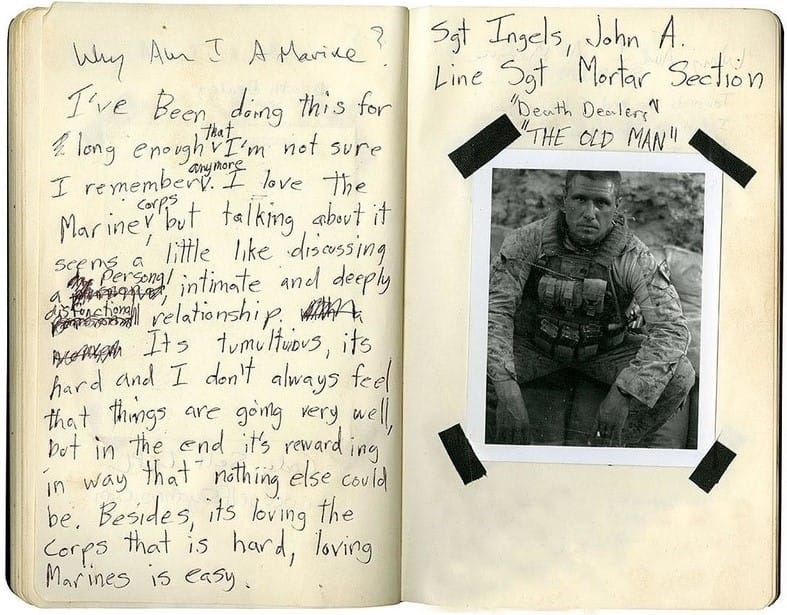 Why Am I A Marine?
I've Been doing this for
long enough that I'm not sure
I remember anymore. I love the
Marine corps, but talking about it
seems a little like discussing
a personal, intimate and deeply
disfonctional relationship. a
Its tumultuous, its
hard and I don't always feel
that things are going very well,
but in the end it's rewarding
in way that nothing else could
be. Besides, its loving the
Corps that is hard, loving
Marines is easy.
Sgt Ingels, John A.
Line Sgt Mortar Section
"Death Dealers"
"THE OLD MAN"